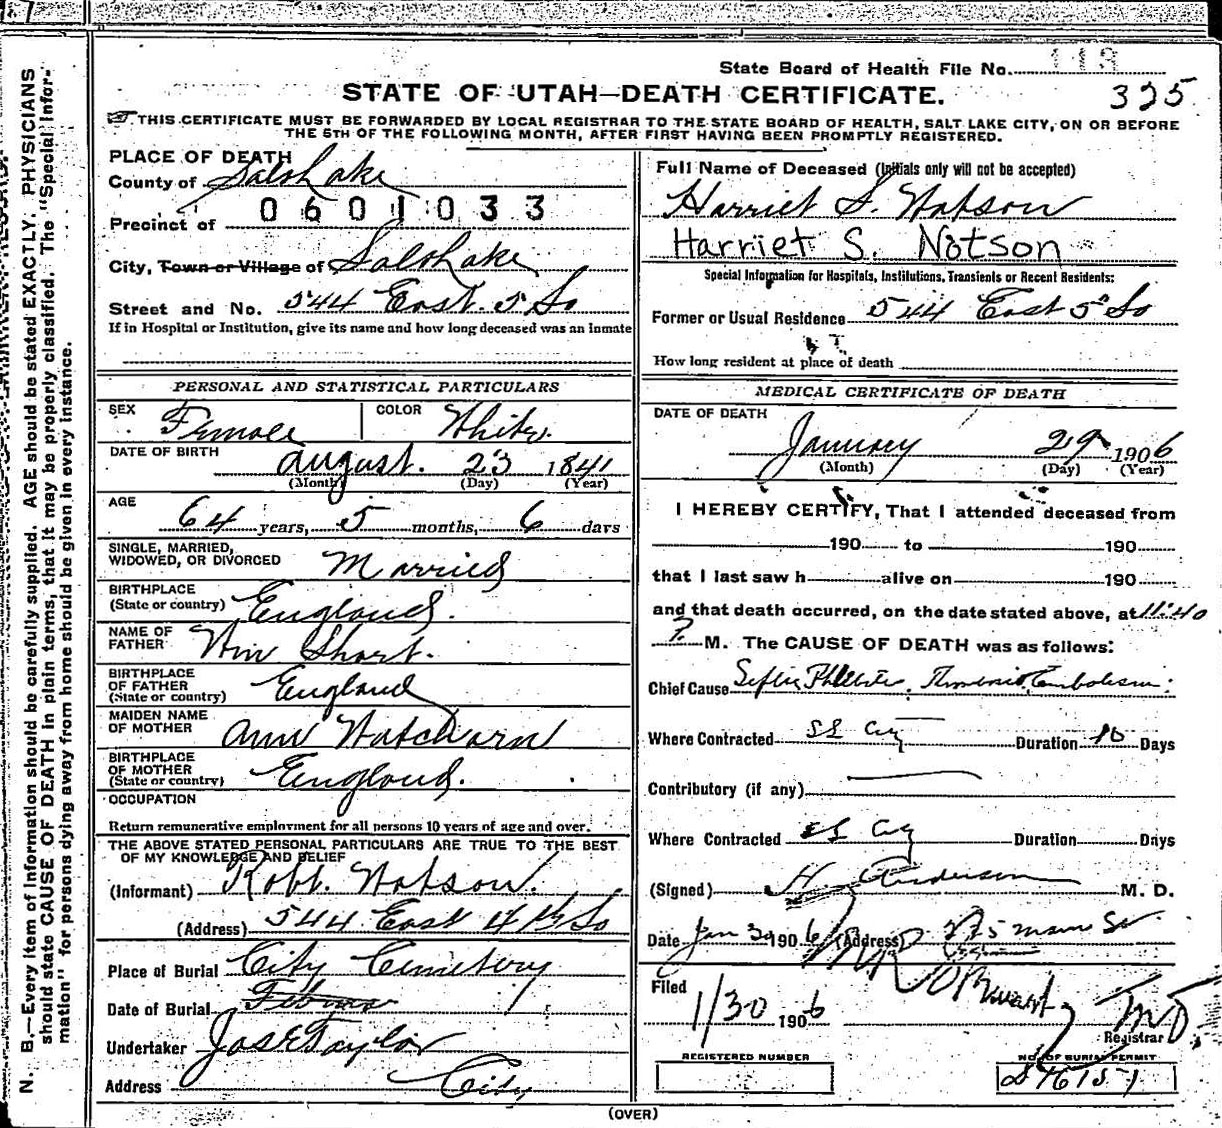 State Board of Health File No. 113
STATE OF UTAH—DEATH CERTIFICATE.
325
THIS CERTIFICATE MUST BE FORWARDED BY LOCAL REGISTRAR TO THE STATE BOARD OF HEALTH, SALT LAKE CITY, ON OR BEFORE
THE 5TH OF THE FOLLOWING MONTH, AFTER FIRST HAVING BEEN PROMPTLY REGISTERED.
N. B.—Every item of information should be carefully supplied. AGE should be stated EXACTLY. PHYSICIANS
should state CAUSE OF DEATH in plain terms, that it may be properly classified. The "Special Infor-
mation" for persons dying away from home should be given in every instance.
PLACE OF DEATH
County of Salt Lake
0601033
Precinct of
City, Town or Village of Salt Lake
Street and No. 544 East 5 So
If in Hospital or Institution, give its name and how long deceased was an inmate
PERSONAL AND STATISTICAL PARTICULARS
SEX Female COLOR White.
DATE OF BIRTH August. 23 1841
(Month) (Day) (Year)
AGE 64 years, 5 months, 6 days
SINGLE, MARRIED,
WIDOWED, OR DIVORCED Married
BIRTHPLACE
(State or country) England.
NAME OF
FATHER Wm Short.
BIRTHPLACE
OF FATHER
(State or country) England
MAIDEN NAME
OF MOTHER Ann
BIRTHPLACE
OF MOTHER
(State or country) England.
OCCUPATION
Return remunerative employment for all persons 10 years of age and over.
THE ABOVE STATED PERSONAL PARTICULARS ARE TRUE TO THE BEST
OF MY KNOWLEDGE AND BELIEF
(Informant) Robt. Notson.
(Address) 544 East 4th So
Place of Burial City Cemetery
Date of Burial
Undertaker Jos E Taylor
Address City
Full Name of Deceased (Initials only will not be accepted)
Harriet S. Notson
Harriet S. Notson
Special Information for Hospitals, Institutions, Transients or Recent Residents:
Former or Usual Residence 544 East 5" So
How long resident at place of death
MEDICAL CERTIFICATE OF DEATH
DATE OF DEATH
January 29 1906
(Month) (Day) (Year)
I HEREBY CERTIFY, That I attended deceased from
190 to 190
that I last saw h alive on 190
and that death occurred, on the date stated above, at 11:40
P. M. The CAUSE OF DEATH was as follows:
Chief Cause Embolism
Where Contracted SL City Duration 10 Days
Contributory (if any)
Where Contracted SL City Duration Days
(Signed) H Anderson M. D.
Date Jan 30 1906 (Address) main St
Filed
1/30 1906
MD
Registrar
REGISTERED NUMBER
NO. OF BURIAL PERMIT
(OVER)